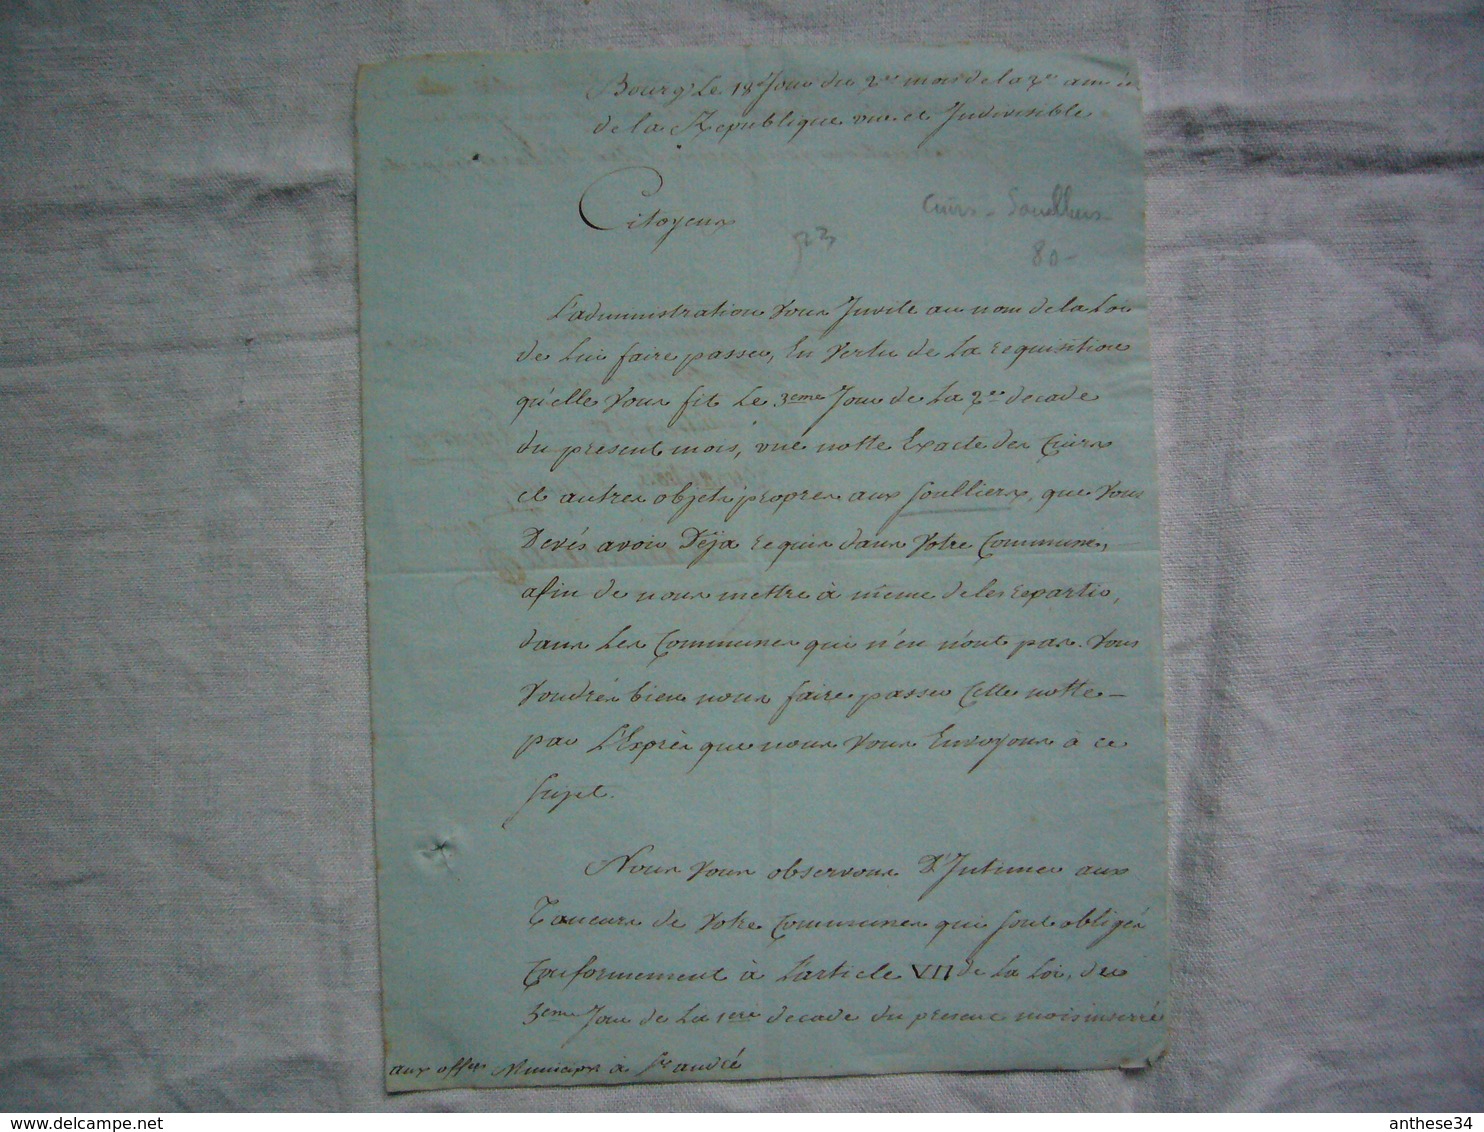 Bourg Le 18e Jour du 2me mois de la 2e année
de la Republique une et Indivisible
Citoyens
Cuirs - Soulliers -
523
80 -
L'administration vous Invite au nom de la Loi
de Lui faire passer, En Vertu de La requisition
qu'elle Vous fit Le 3eme Jour de La 2de decade
du present mois, une notte Exacte des Cuirs
et autres objets propres aux soulliers, que Vous
Devés avoir Déja requis dans Votre Commune,
afin de nous mettre à même de les repartir,
dans Les Communes qui n'en n'ont pas. Vous
Voudrés bien nous faire passer Cette notte -
par L'Exprès que nous Vous Envoyons à ce
sujet.
Nous Vous observons D'Intimer aux
Taneurs de Votre Communes qui sont obligés
Conformement à L'article VII de La Loi, du
3eme Jour de La 1ere decade du present mois inserré
aux offers Municipx à St andré
anthese34